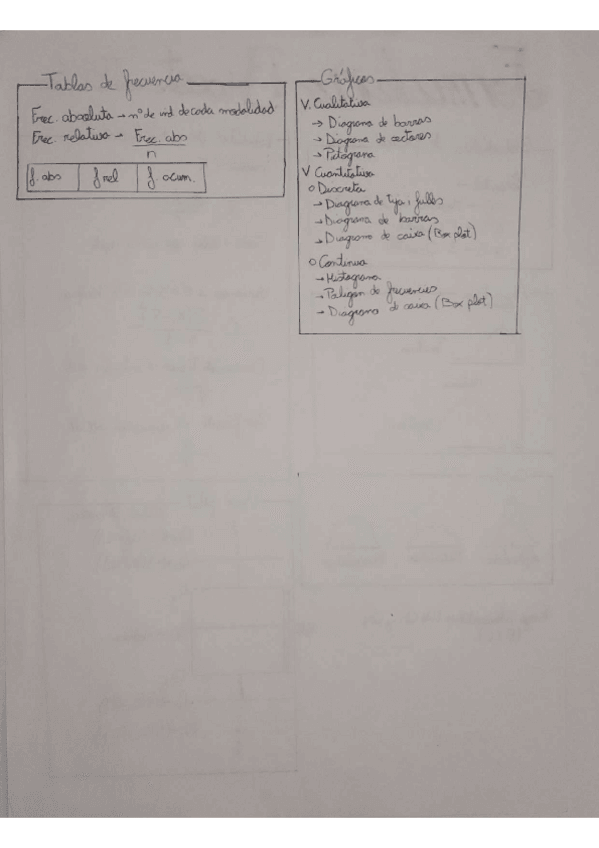 Tablas de frecuencia
Frec. absoluta → nº de ind de cada modalidad
Frec. relativa → Frec. abs
n
f. abs f rel f. acum.
Gráficos
V. Cualitativa
→ Diagrama de barras
→ Diagrama de sectores
→ Pictograma
V Cuantitativa
o Discreta
→ Diagrama de tija i fulles
→ Diagrama de barras
→ Diagrama de caixa (Box plot)
o Continua
→ Histograma
→ Poligon de frecuencies
→ Diagrama de caixa (Box plot)